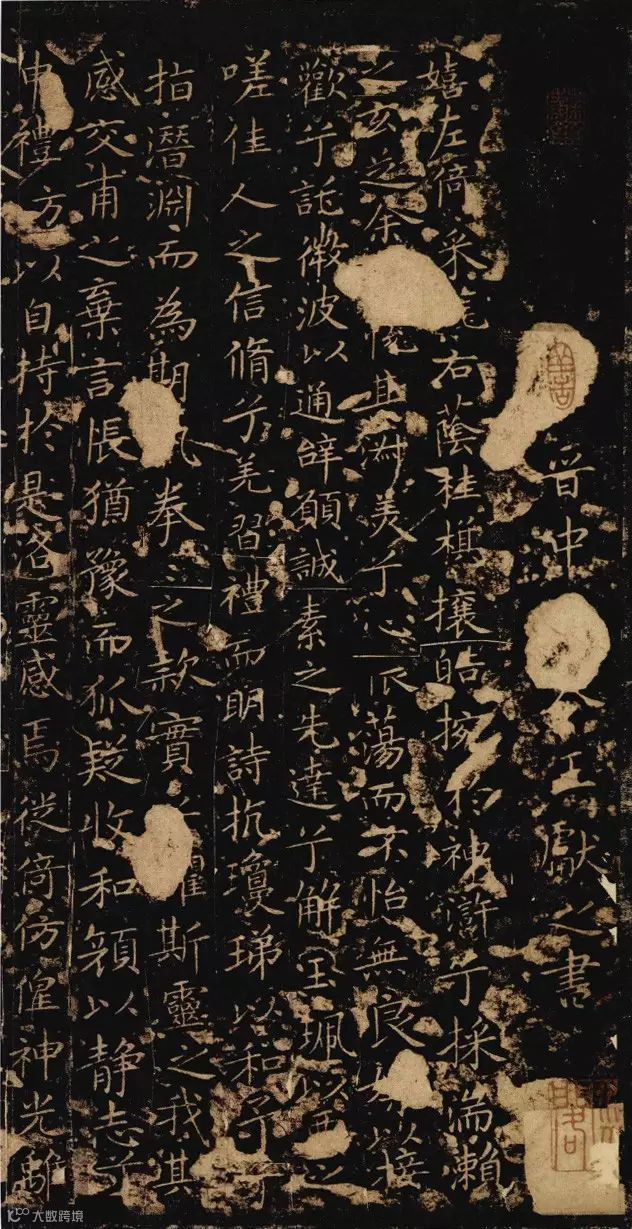 晉中令王獻之書
嬉左倚采旄右蔭桂棋攘皓捥於神滸兮採湍瀨
之玄芝余悅其淑美兮心振蕩而不怡無良媒以接
歡兮託微波以通辭願誠素之先達兮解玉珮以要之
嗟佳人之信脩兮羌習禮而明詩抗瓊珶以和予兮
指潛淵而為期執拳〻之款實兮懼斯靈之我欺
感交甫之棄言悵猶豫而狐疑收和顏以静志兮
申禮防以自持於是洛靈感焉徙倚仿偟神光離
大数跨境